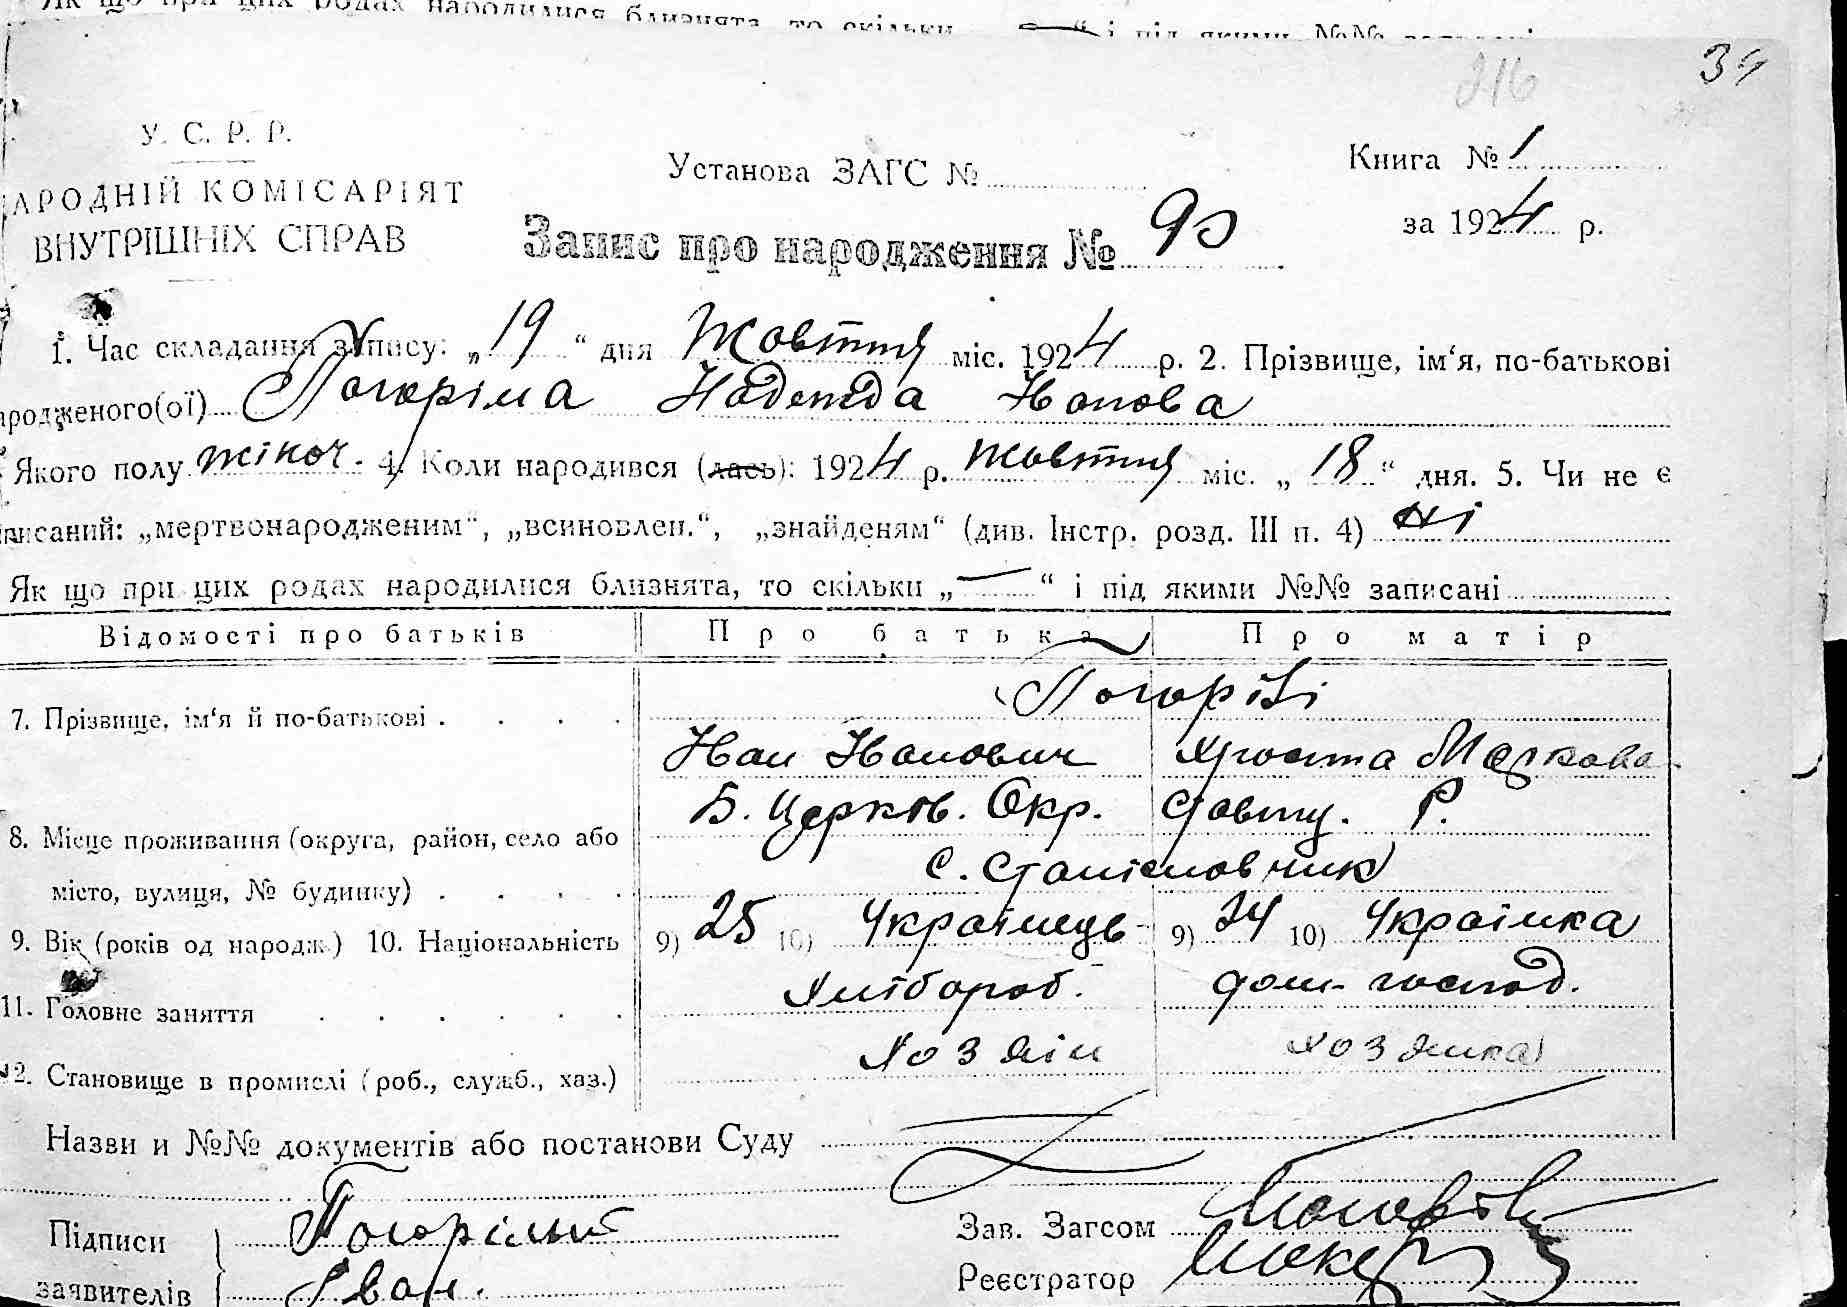 Як що при цих родах народилися близнята, то скільки „—“ і під якими №№ записані
216
34
У. С. Р. Р.
АРОДНІЙ КОМІСАРІЯТ
ВНУТРІШНІХ СПРАВ
Установа ЗАГС №
Книга № 1
за 1924 р.
Запис про народження № 90
1. Час складання запису: „19“ дня Жовтня міс. 1924 р. 2. Прізвище, ім‘я, по-батькові
ародженого(ої) Погоріла Надежда Іванова
Якого полу жіноч. 4. Коли народився (лась): 1924 р. жовтня міс. „18“ дня. 5. Чи не є
писаний: „мертвонародженим“, „всиновлен.“, „знайденям“ (див. Інстр. розд. III п. 4) ні
Як що при цих родах народилися близнята, то скільки „—“ і під якими №№ записані
Відомості про батьків Про батька Про матір
7. Прізвище, ім‘я й по-батькові Погорілі
Іван Іванович Хрости Маркова
8. Місце проживання (округа, район, село або Б. Церков. Окр. Ставищ. Р.
місто, вулиця, № будинку) с. Станіславчик
9. Вік (років од народж.) 10. Національність 9) 25 10) Українець 9) 24 10) Українка
11. Головне заняття Хлібороб. дом. господ.
12. Становище в промислі (роб., служб., хаз.) хозяін хозяика
Назви и №№ документів або постанови Суду
Підписи Погорілий
заявителів Іван.
Зав. Загсом
Реєстратор